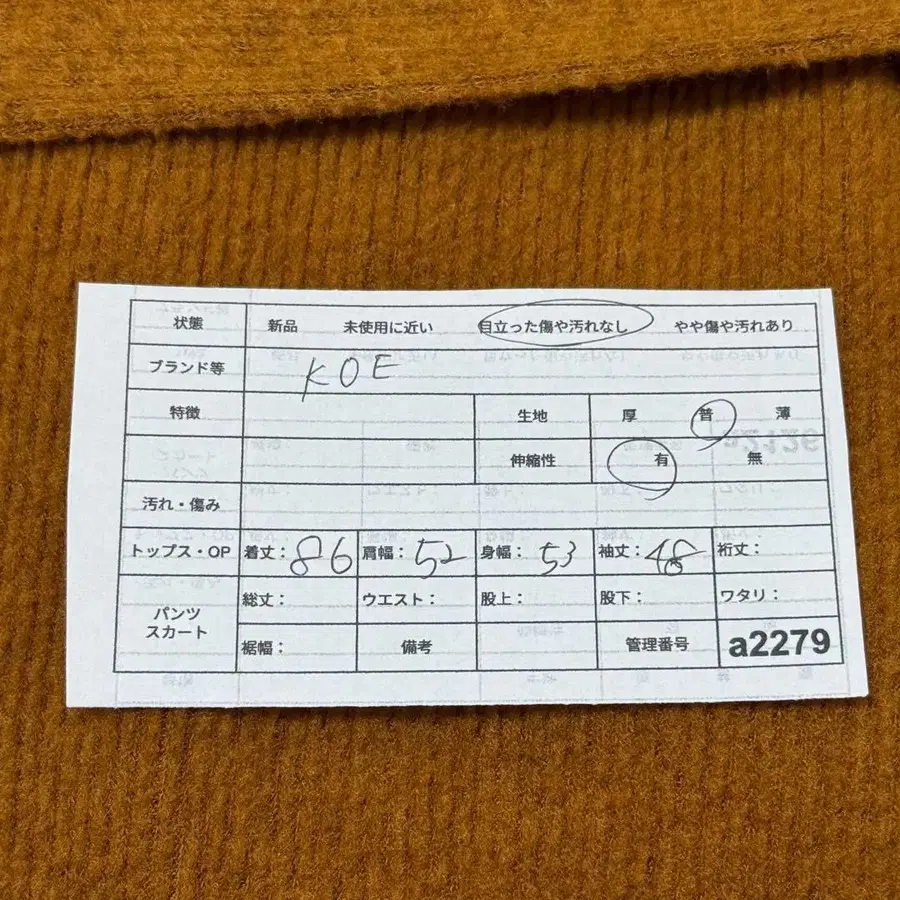 状態 新品 未使用に近い 目立った傷や汚れなし やや傷や汚れあり
ブランド等 KOE
特徴 生地 厚 普 薄
伸縮性 有 無
汚れ・傷み
トップス・OP 着丈：86 肩幅：52 身幅：53 袖丈：48 裄丈：
パンツ スカート 総丈： ウエスト： 股上： 股下： ワタリ：
裾幅： 備考 管理番号 a2279